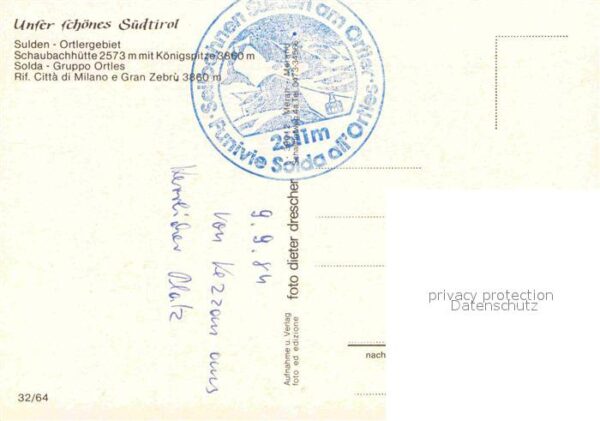 Unser schönes Südtirol
Sulden - Ortlergebiet
Schaubachhütte 2573 m mit Königspitze 3860 m
Solda - Gruppo Ortles
Rif. Città di Milano e Gran Zebrù 3860 m
Seilbahnen Sulden am Ortler
2611m
Funivie Solda all'Ortles
9. 9. 84
foto dieter drescher
Aufnahme u. Verlag
foto ed edizione
nach
privacy protection
Datenschutz
32/64